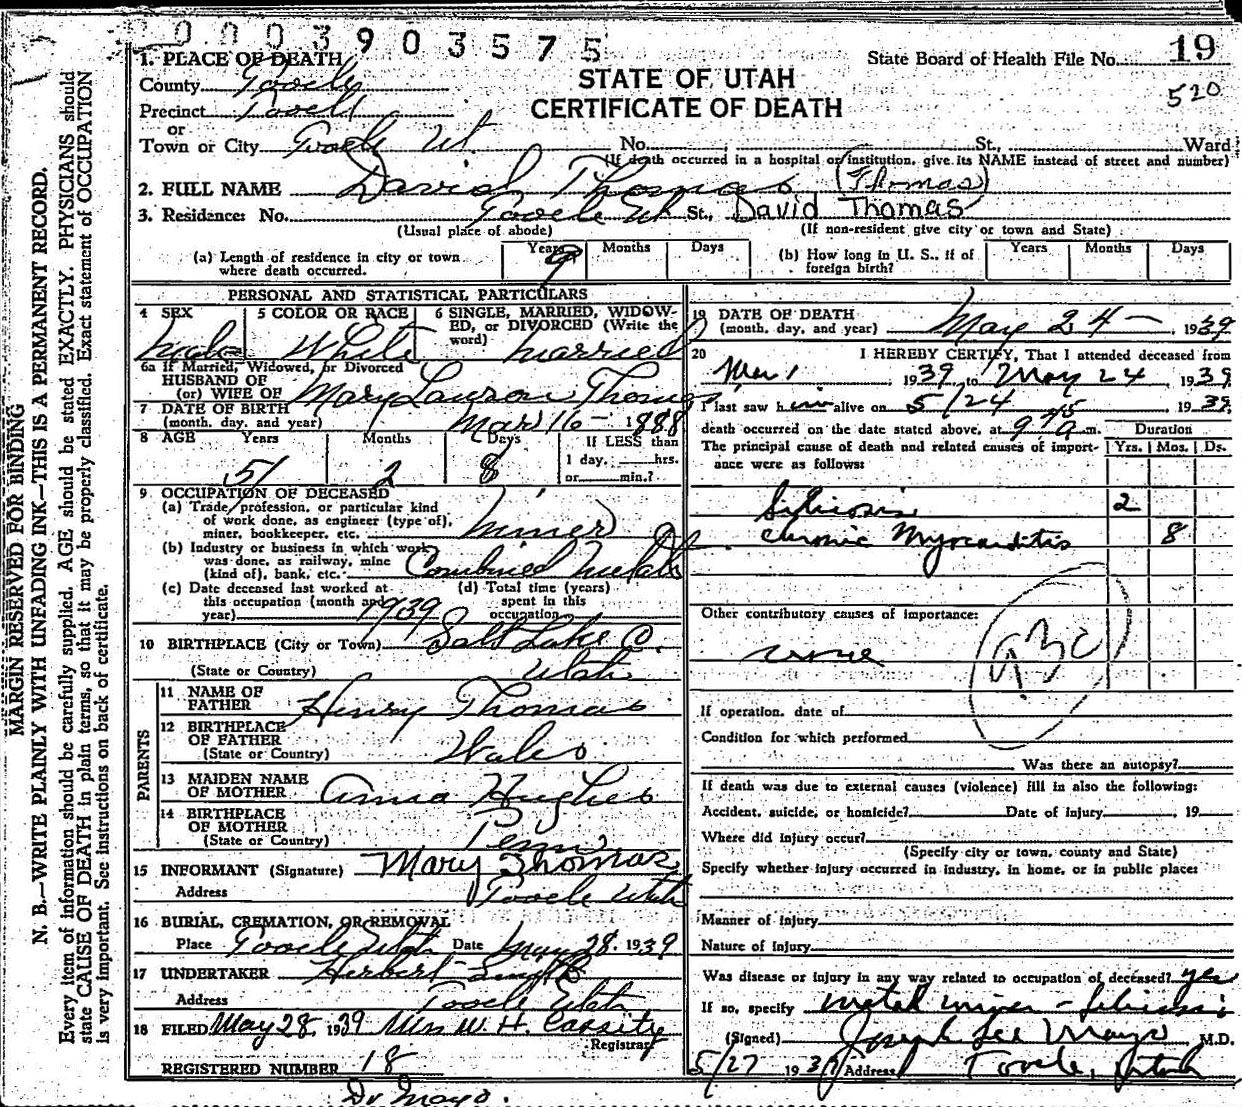 0003903575
1. PLACE OF DEATH
State Board of Health File No. 19
County Tooele
STATE OF UTAH
520
Precinct Tooele
CERTIFICATE OF DEATH
or
Town or City Tooele Ut. No. St., Ward
(If death occurred in a hospital or institution, give its NAME instead of street and number)
2. FULL NAME David Thomas (Thomas)
3. Residence: No. Tooele Ut St., David Thomas
(Usual place of abode) (If non-resident give city or town and State)
(a) Length of residence in city or town where death occurred. Years 9 Months Days
(b) How long in U. S., if of foreign birth? Years Months Days
PERSONAL AND STATISTICAL PARTICULARS
4 SEX Male
5 COLOR OR RACE White
6 SINGLE, MARRIED, WIDOWED, or DIVORCED (Write the word) Married
6a If Married, Widowed, or Divorced
HUSBAND OF
(or) WIFE OF Mary Lawson Thomas
7 DATE OF BIRTH
(month, day, and year) Mar 16 - 1888
8 AGE Years 51 Months 2 Days 8 If LESS than
1 day, hrs.
or min.?
9 OCCUPATION OF DECEASED
(a) Trade, profession, or particular kind
of work done, as engineer (type of),
miner, bookkeeper, etc. Miner
(b) Industry or business in which work
was done, as railway, mine
(kind of), bank, etc. Combined Metals
(c) Date deceased last worked at
this occupation (month and
year) 1939
(d) Total time (years)
spent in this
occupation
10 BIRTHPLACE (City or Town) Salt Lake Co.
(State or Country) Utah
PARENTS
11 NAME OF
FATHER Henry Thomas
12 BIRTHPLACE
OF FATHER
(State or Country) Wales
13 MAIDEN NAME
OF MOTHER Anna Hughes
14 BIRTHPLACE
OF MOTHER
(State or Country) Penn
15 INFORMANT (Signature) Mary Thomas
Address Tooele Utah
16 BURIAL, CREMATION, OR REMOVAL
Place Tooele Utah Date May 28 1939
17 UNDERTAKER Herbert
Address Tooele Utah
18 FILED May 28 1939 Miss W. H. Cassity
Registrar
REGISTERED NUMBER 18
Dr Mayo.
19 DATE OF DEATH
(month, day, and year) May 24 - 1939
20 I HEREBY CERTIFY, That I attended deceased from
Mar 1 1939 to May 24 1939
I last saw him alive on 5/24 1939
death occurred on the date stated above, at 9:45 a m. Duration
The principal cause of death and related causes of importance were as follows: Yrs. Mos. Ds.
Silicosis 2
Chronic Myocarditis 8
Other contributory causes of importance:
none
93C
If operation, date of
Condition for which performed
Was there an autopsy?
If death was due to external causes (violence) fill in also the following:
Accident, suicide, or homicide? Date of injury , 19
Where did injury occur?
(Specify city or town, county and State)
Specify whether injury occurred in industry, in home, or in public place:
Manner of injury
Nature of injury
Was disease or injury in any way related to occupation of deceased? yes
If so, specify metal miner - silicosis
(Signed) Joseph Lee Mayo M.D.
5/27 1939 Address Tooele, Utah
MARGIN RESERVED FOR BINDING
N. B.—WRITE PLAINLY WITH UNFADING INK—THIS IS A PERMANENT RECORD.
Every item of information should be carefully supplied. AGE should be stated EXACTLY. PHYSICIANS should
state CAUSE OF DEATH in plain terms, so that it may be properly classified. Exact statement of OCCUPATION
is very important. See instructions on back of certificate.